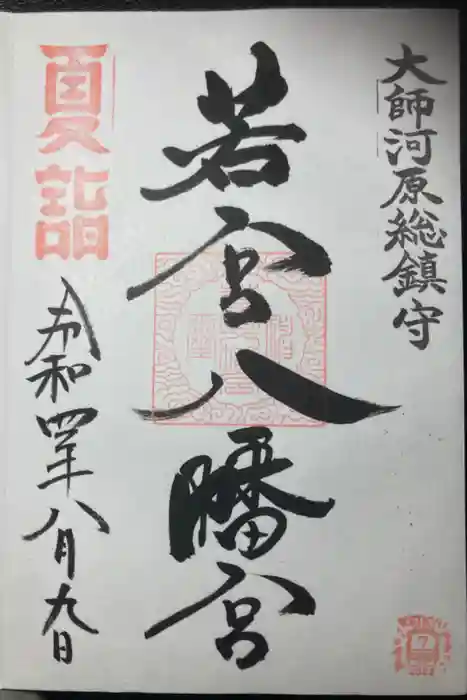 大師河原総鎮守
若宮八幡宮
夏詣
令和四年八月九日